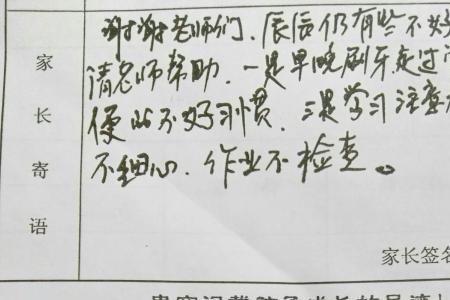 谢谢老师们、辰辰仍有些不好
请老师帮助、一是早晚刷牙走过
便的不好习惯、二是学习注意
不细心、作业不检查。
家长寄语
家长签名